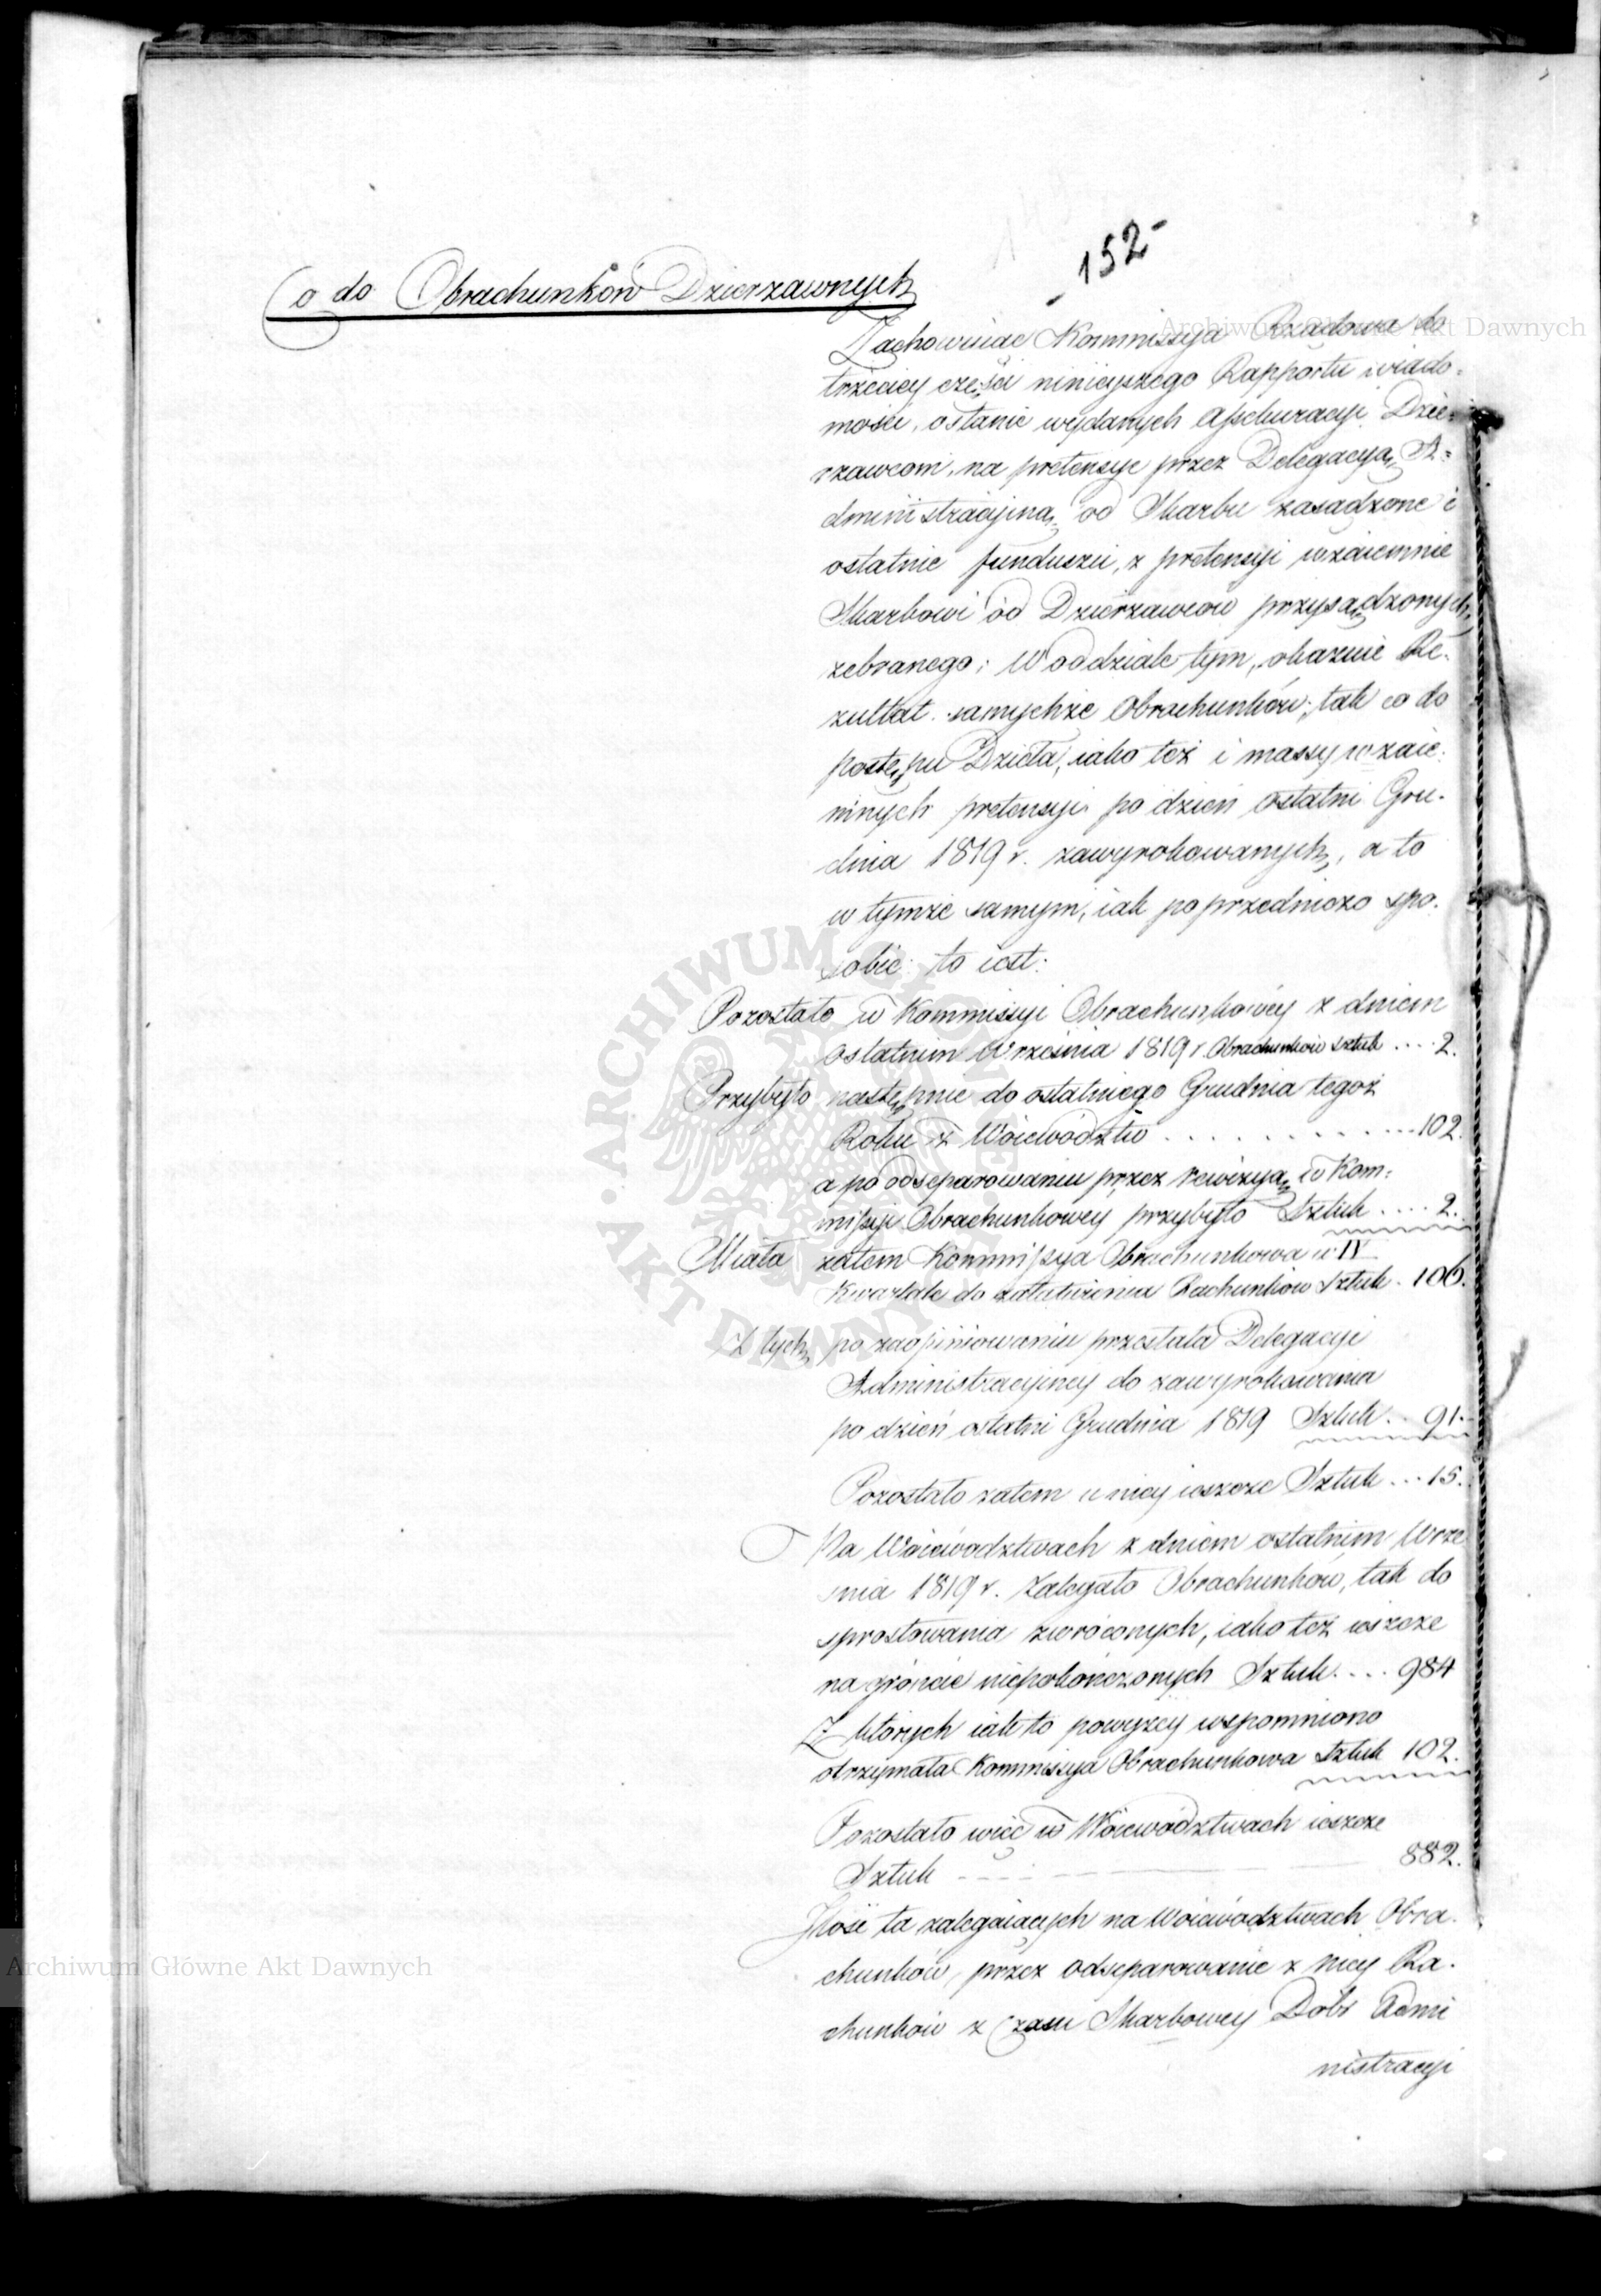 152
Co do Obrachunków Dzierzawnych
Zachowuiąc Kommissya Rządowa do
trzeciey części ninieyszego Rapportu wiado-
mość, o stanie wydanych Assekuracyi Dzie-
rzawcom, na pretensye przez Delegacyą A-
dministracyiną od Skarbu zasądzone i
o stanie funduszu, z pretensyi wzaiemnie
Skarbowi od Dzierzawców przysądzonych,
zebranego; W oddziale tym, okazuie Re-
zultat samychże Obrachunków, tak co do
postępu Dzieła, iako też i massy wzaie-
mnych pretensyi po dzień ostatni Gru-
dnia 1819 r. zawyrokowanych, a to
w tymże samym, iak poprzedniczo spo-
sobie to iest:
Pozostało w Kommissyi Obrachunkowéy z dniem
ostatnim Września 1819 r Obrachunków sztuk .... 2.
Przybyło następnie do ostatniego Grudnia tegoż
Roku z Woiewództw . . . . . . . . . . . 102.
a po odseparowaniu przez rewizyą w Kom-
missyi Obrachunkowey przybyło Sztuk .... 2.
Miała zatem Kommissya Obrachunkowa w IV
Kwartale do załatwienia Rachunków Sztuk . 106.
Z tych po zaopiniowaniu przesłała Delegacyi
Administracyiney do zawyrokowania
po dzień ostatni Grudnia 1819 Sztuk .. 91.
Pozostało zatem u niey ieszcze Sztuk ... 15.
Na Woiewództwach z dniem ostatnim Wrze
śnia 1819 r. Zalegało Obrachunków, tak do
sprostowania zwróconych, iako też ieszcze
na gróncie niepokończonych Sztuk .... 984
Z których iak to powyżey wspomniono
otrzymała Kommissya Obrachunkowa Sztuk 102.
Pozostało więc w Woiewództwach ieszcze
Sztuk - - - - 882.
Ilość ta zalegaiących na Woiewództwach Obra-
chunków, przez odseparowanie z niey Ra-
chunków z czasu Skarbowey Dóbr Admi
nistracyi
Archiwum Główne Akt Dawnych
Archiwum Główne Akt Dawnych
ARCHIWUM GŁÓWNE AKT DAWNYCH